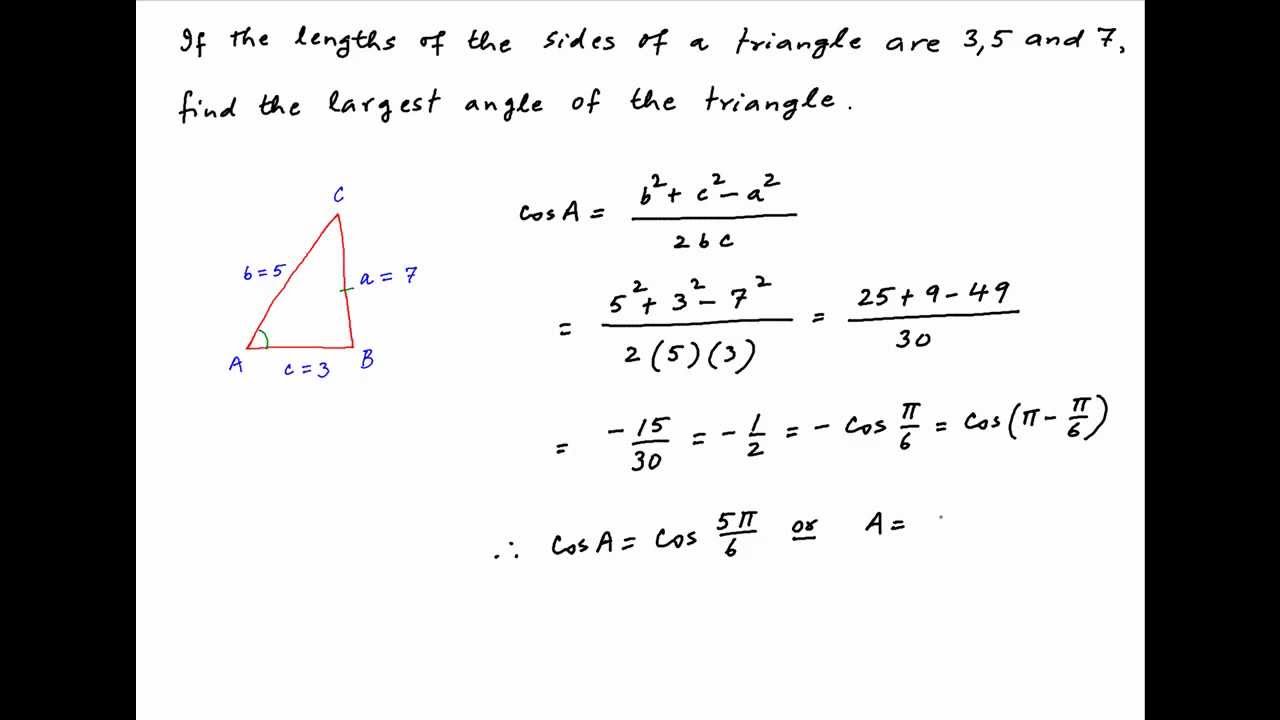 If the lengths of the sides of a triangle are 3,5 and 7,
find the largest angle of the triangle.
C
b=5
a= 7
A
c=3
B
cosA = (b²+ c²- a²)/(2bc)
= (5²+ 3²- 7²)/(2(5)(3)) = (25+9-49)/30
= -15/30 = -1/2 = - cos π/6 = cos(π- π/6)
∴ cosA= cos 5π/6 or A=